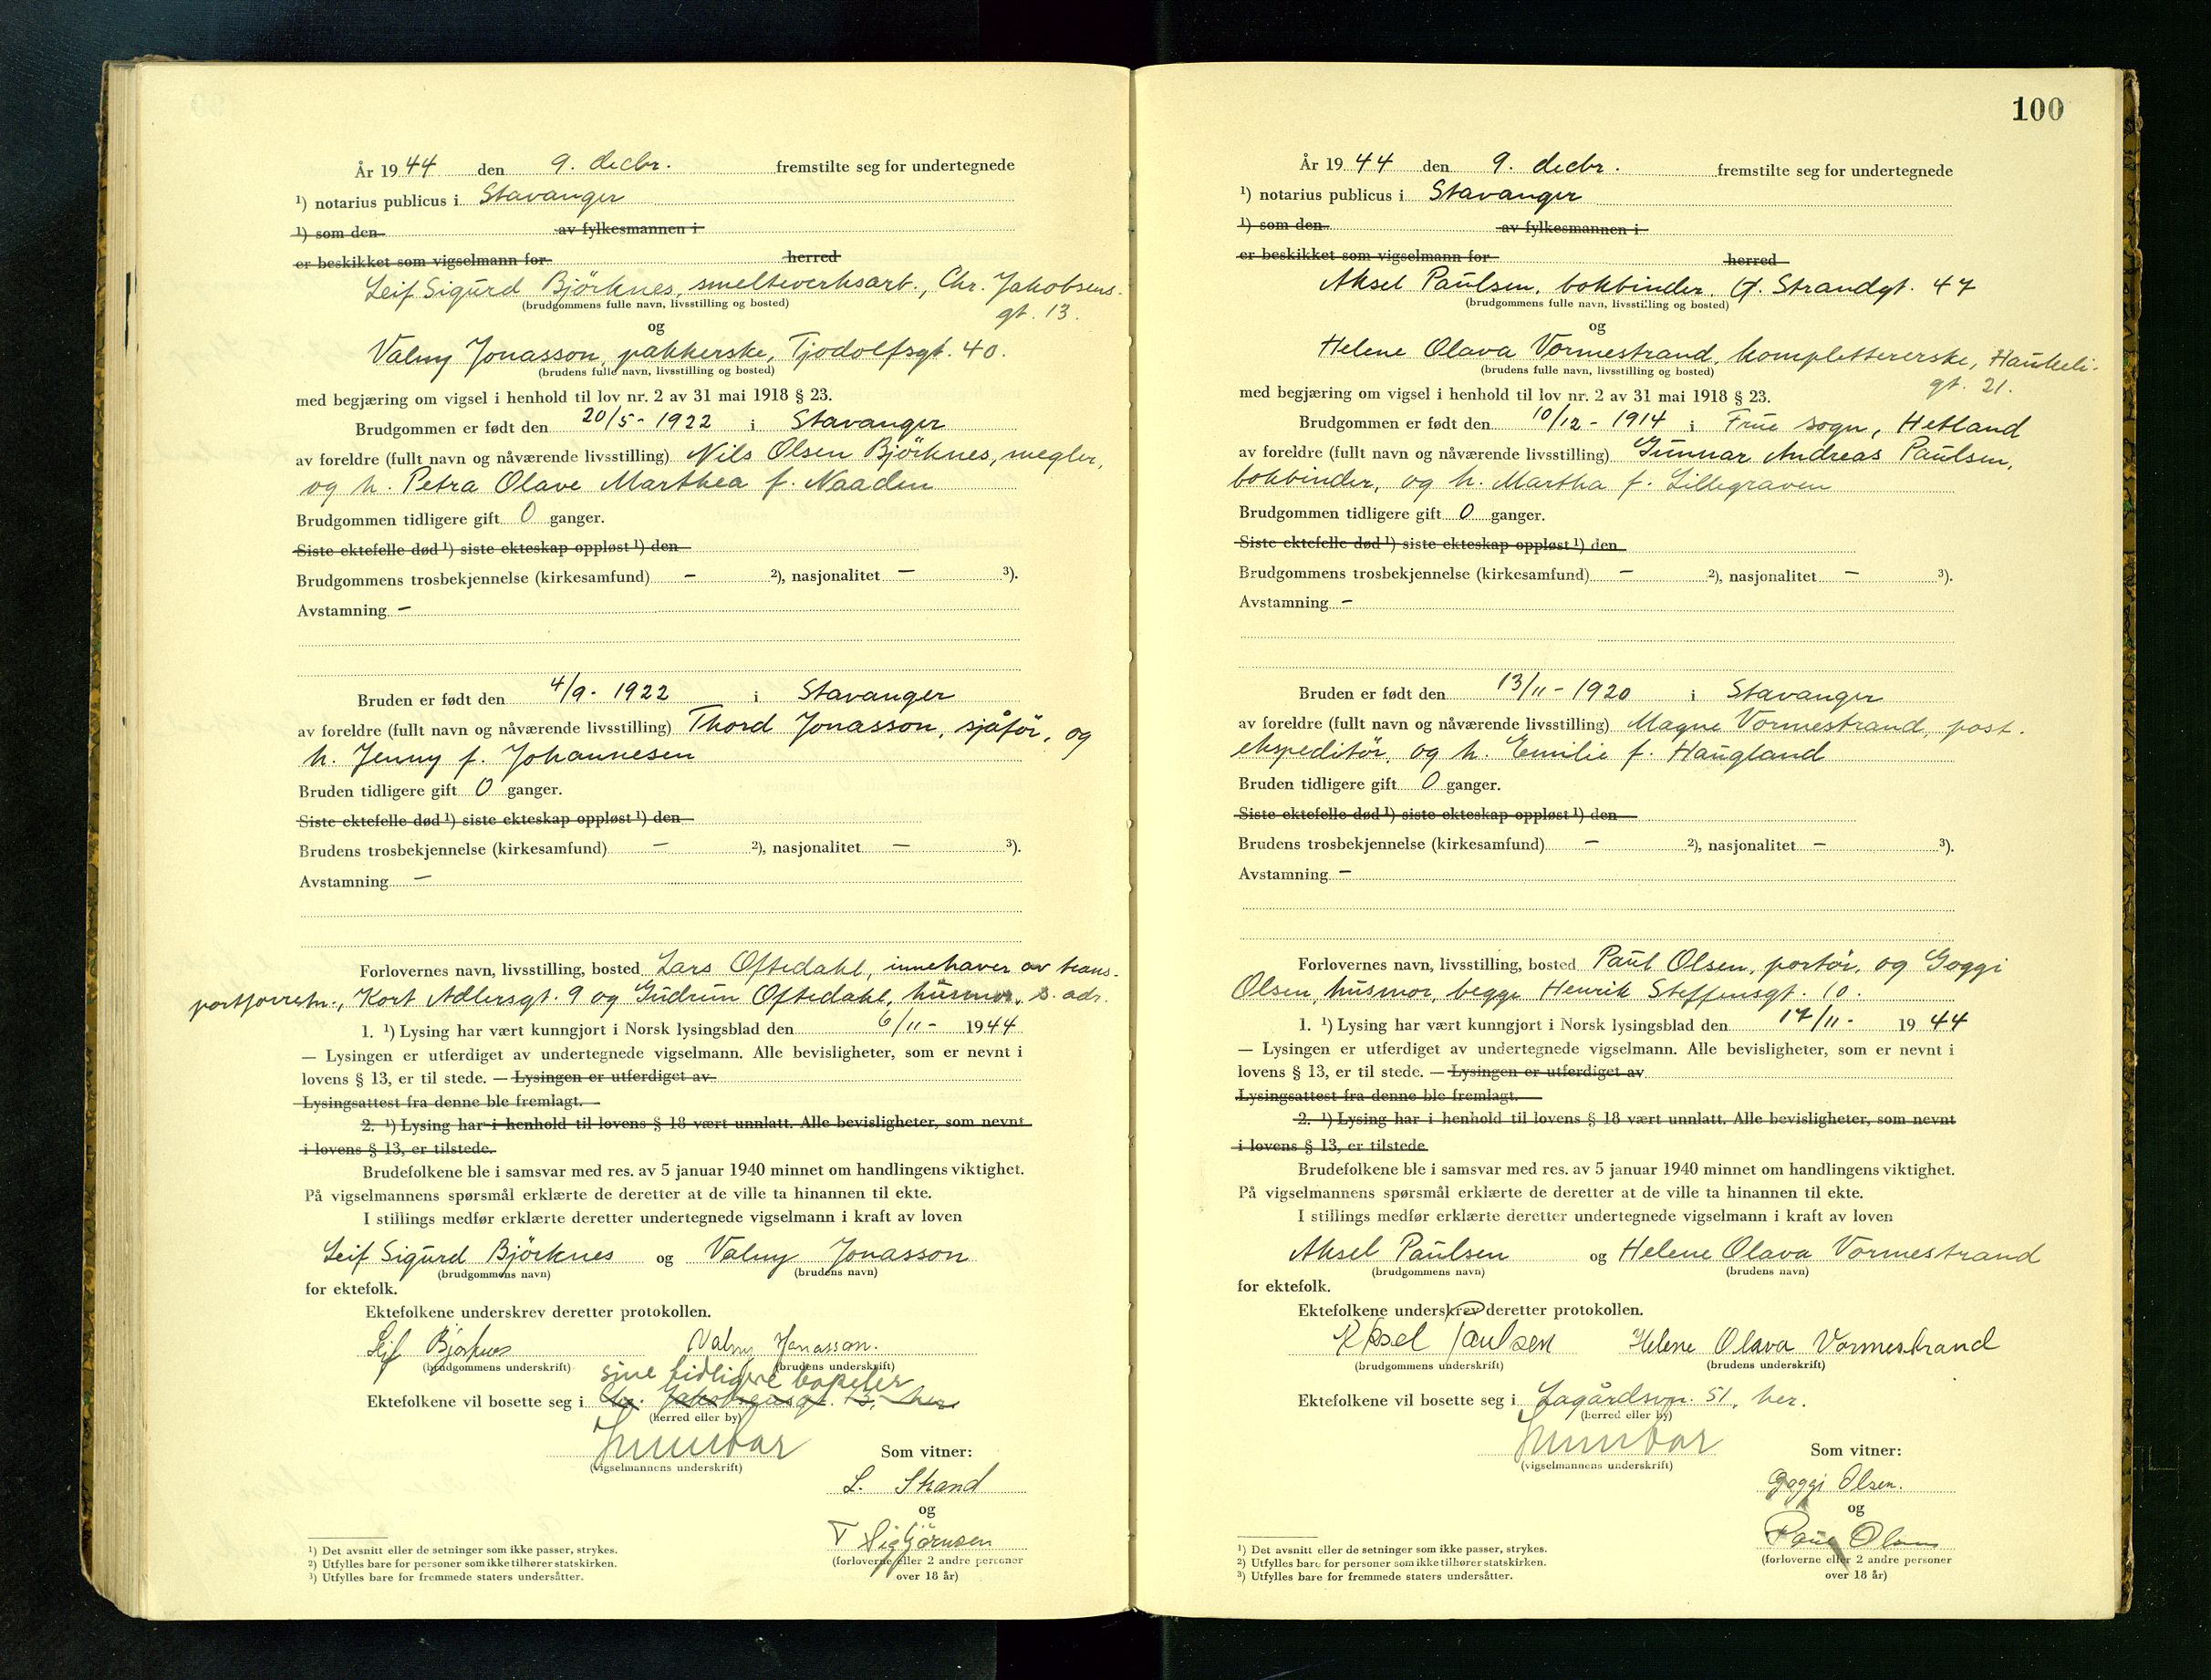 År 1944 den 9. decbr. fremstilte seg for undertegnede
¹) notarius publicus i Stavanger
¹) som den av fylkesmannen i
er beskikket som vigselmann for herred
Leif Sigurd Björknes, smelteverksarb., Chr. Jakobsens-
(brudgommens fulle navn, livsstilling og bosted)
gt. 13.
og
Valny Jonasson, pakkerske, Tjodolfsgt. 40.
(brudens fulle navn, livsstilling og bosted)
med begjæring om vigsel i henhold til lov nr. 2 av 31 mai 1918 § 23.
Brudgommen er født den 20/5- 1922 i Stavanger
av foreldre (fullt navn og nåværende livsstilling) Nils Olsen Björknes, megler,
og h. Petra Olave Marthea f. Naaden
Brudgommen tidligere gift 0 ganger.
Siste ektefelle død ¹) siste ekteskap oppløst ¹) den
Brudgommens trosbekjennelse (kirkesamfund) – ²), nasjonalitet – ³).
Avstamning –
Bruden er født den 4/9- 1922 i Stavanger
av foreldre (fullt navn og nåværende livsstilling) Thord Jonasson, sjåför, og
h. Jenny f. Johannesen
Bruden tidligere gift 0 ganger.
Siste ektefelle død ¹) siste ekteskap oppløst ¹) den
Brudens trosbekjennelse (kirkesamfund) – ²), nasjonalitet – ³).
Avstamning –
Forlovernes navn, livsstilling, bosted Lars Oftedahl, innehaver av trans-
portforretn., Kort Adlersgt. 9 og Gudrun Oftedahl, husmor, s. adr.
1. ¹) Lysing har vært kunngjort i Norsk lysingsblad den 6/11- 1944
— Lysingen er utferdiget av undertegnede vigselmann. Alle bevisligheter, som er nevnt i
lovens § 13, er til stede. — Lysingen er utferdiget av
Lysingsattest fra denne ble fremlagt.
2. ¹) Lysing har i henhold til lovens § 18 vært unnlatt. Alle bevisligheter, som nevnt
i lovens § 13, er tilstede.
Brudefolkene ble i samsvar med res. av 5 januar 1940 minnet om handlingens viktighet.
På vigselmannens spørsmål erklærte de deretter at de ville ta hinannen til ekte.
I stillings medfør erklærte deretter undertegnede vigselmann i kraft av loven
Leif Sigurd Björknes og Valny Jonasson
(brudgommens navn) (brudens navn)
for ektefolk.
Ektefolkene underskrev deretter protokollen.
Leif Björknes Valny Jonasson.
(brudgommens underskrift) (brudens underskrift)
sine tidligere bopeler
Ektefolkene vil bosette seg i Chr. Jakobsensgt. 13, her
(herred eller by)
(vigselmannens underskrift)
Som vitner:
L. Strand
og
T Sigbjørnsen
(forloverne eller 2 andre personer
over 18 år)
¹) Det avsnitt eller de setninger som ikke passer, strykes.
²) Utfylles bare for personer som ikke tilhører statskirken.
³) Utfylles bare for fremmede staters undersåtter.
100
År 1944 den 9. decbr. fremstilte seg for undertegnede
¹) notarius publicus i Stavanger
¹) som den av fylkesmannen i
er beskikket som vigselmann for herred
Aksel Paulsen, bokbinder, Ø. Strandgt. 47
(brudgommens fulle navn, livsstilling og bosted)
og
Helene Olava Vormestrand, komplettererske, Haukeli-
(brudens fulle navn, livsstilling og bosted)
gt. 21.
med begjæring om vigsel i henhold til lov nr. 2 av 31 mai 1918 § 23.
Brudgommen er født den 10/12 - 1914 i Frue sogn, Hetland
av foreldre (fullt navn og nåværende livsstilling) Gunnar Andreas Paulsen,
bokbinder, og h. Martha f. Lillegraven
Brudgommen tidligere gift 0 ganger.
Siste ektefelle død ¹) siste ekteskap oppløst ¹) den
Brudgommens trosbekjennelse (kirkesamfund) – ²), nasjonalitet – ³).
Avstamning –
Bruden er født den 13/11 - 1920 i Stavanger
av foreldre (fullt navn og nåværende livsstilling) Magne Vormestrand, post-
ekspeditör, og h. Emilie f. Haugland
Bruden tidligere gift 0 ganger.
Siste ektefelle død ¹) siste ekteskap oppløst ¹) den
Brudens trosbekjennelse (kirkesamfund) – ²), nasjonalitet – ³).
Avstamning –
Forlovernes navn, livsstilling, bosted Paul Olsen, portör, og Goggi
Olsen, husmor, begge Henrik Steffensgt. 10.
1. ¹) Lysing har vært kunngjort i Norsk lysingsblad den 17/11- 1944
— Lysingen er utferdiget av undertegnede vigselmann. Alle bevisligheter, som er nevnt i
lovens § 13, er til stede. — Lysingen er utferdiget av
Lysingsattest fra denne ble fremlagt.
2. ¹) Lysing har i henhold til lovens § 18 vært unnlatt. Alle bevisligheter, som nevnt
i lovens § 13, er tilstede.
Brudefolkene ble i samsvar med res. av 5 januar 1940 minnet om handlingens viktighet.
På vigselmannens spørsmål erklærte de deretter at de ville ta hinannen til ekte.
I stillings medfør erklærte deretter undertegnede vigselmann i kraft av loven
Aksel Paulsen og Helene Olava Vormestrand
(brudgommens navn) (brudens navn)
for ektefolk.
Ektefolkene underskrev deretter protokollen.
Aksel Paulsen Helene Olava Vormestrand
(brudgommens underskrift) (brudens underskrift)
Ektefolkene vil bosette seg i Lagårdsvn. 51, her.
(herred eller by)
(vigselmannens underskrift)
Som vitner:
Goggi Olsen.
og
Paul Olsen
(forloverne eller 2 andre personer
over 18 år)
¹) Det avsnitt eller de setninger som ikke passer, strykes.
²) Utfylles bare for personer som ikke tilhører statskirken.
³) Utfylles bare for fremmede staters undersåtter.